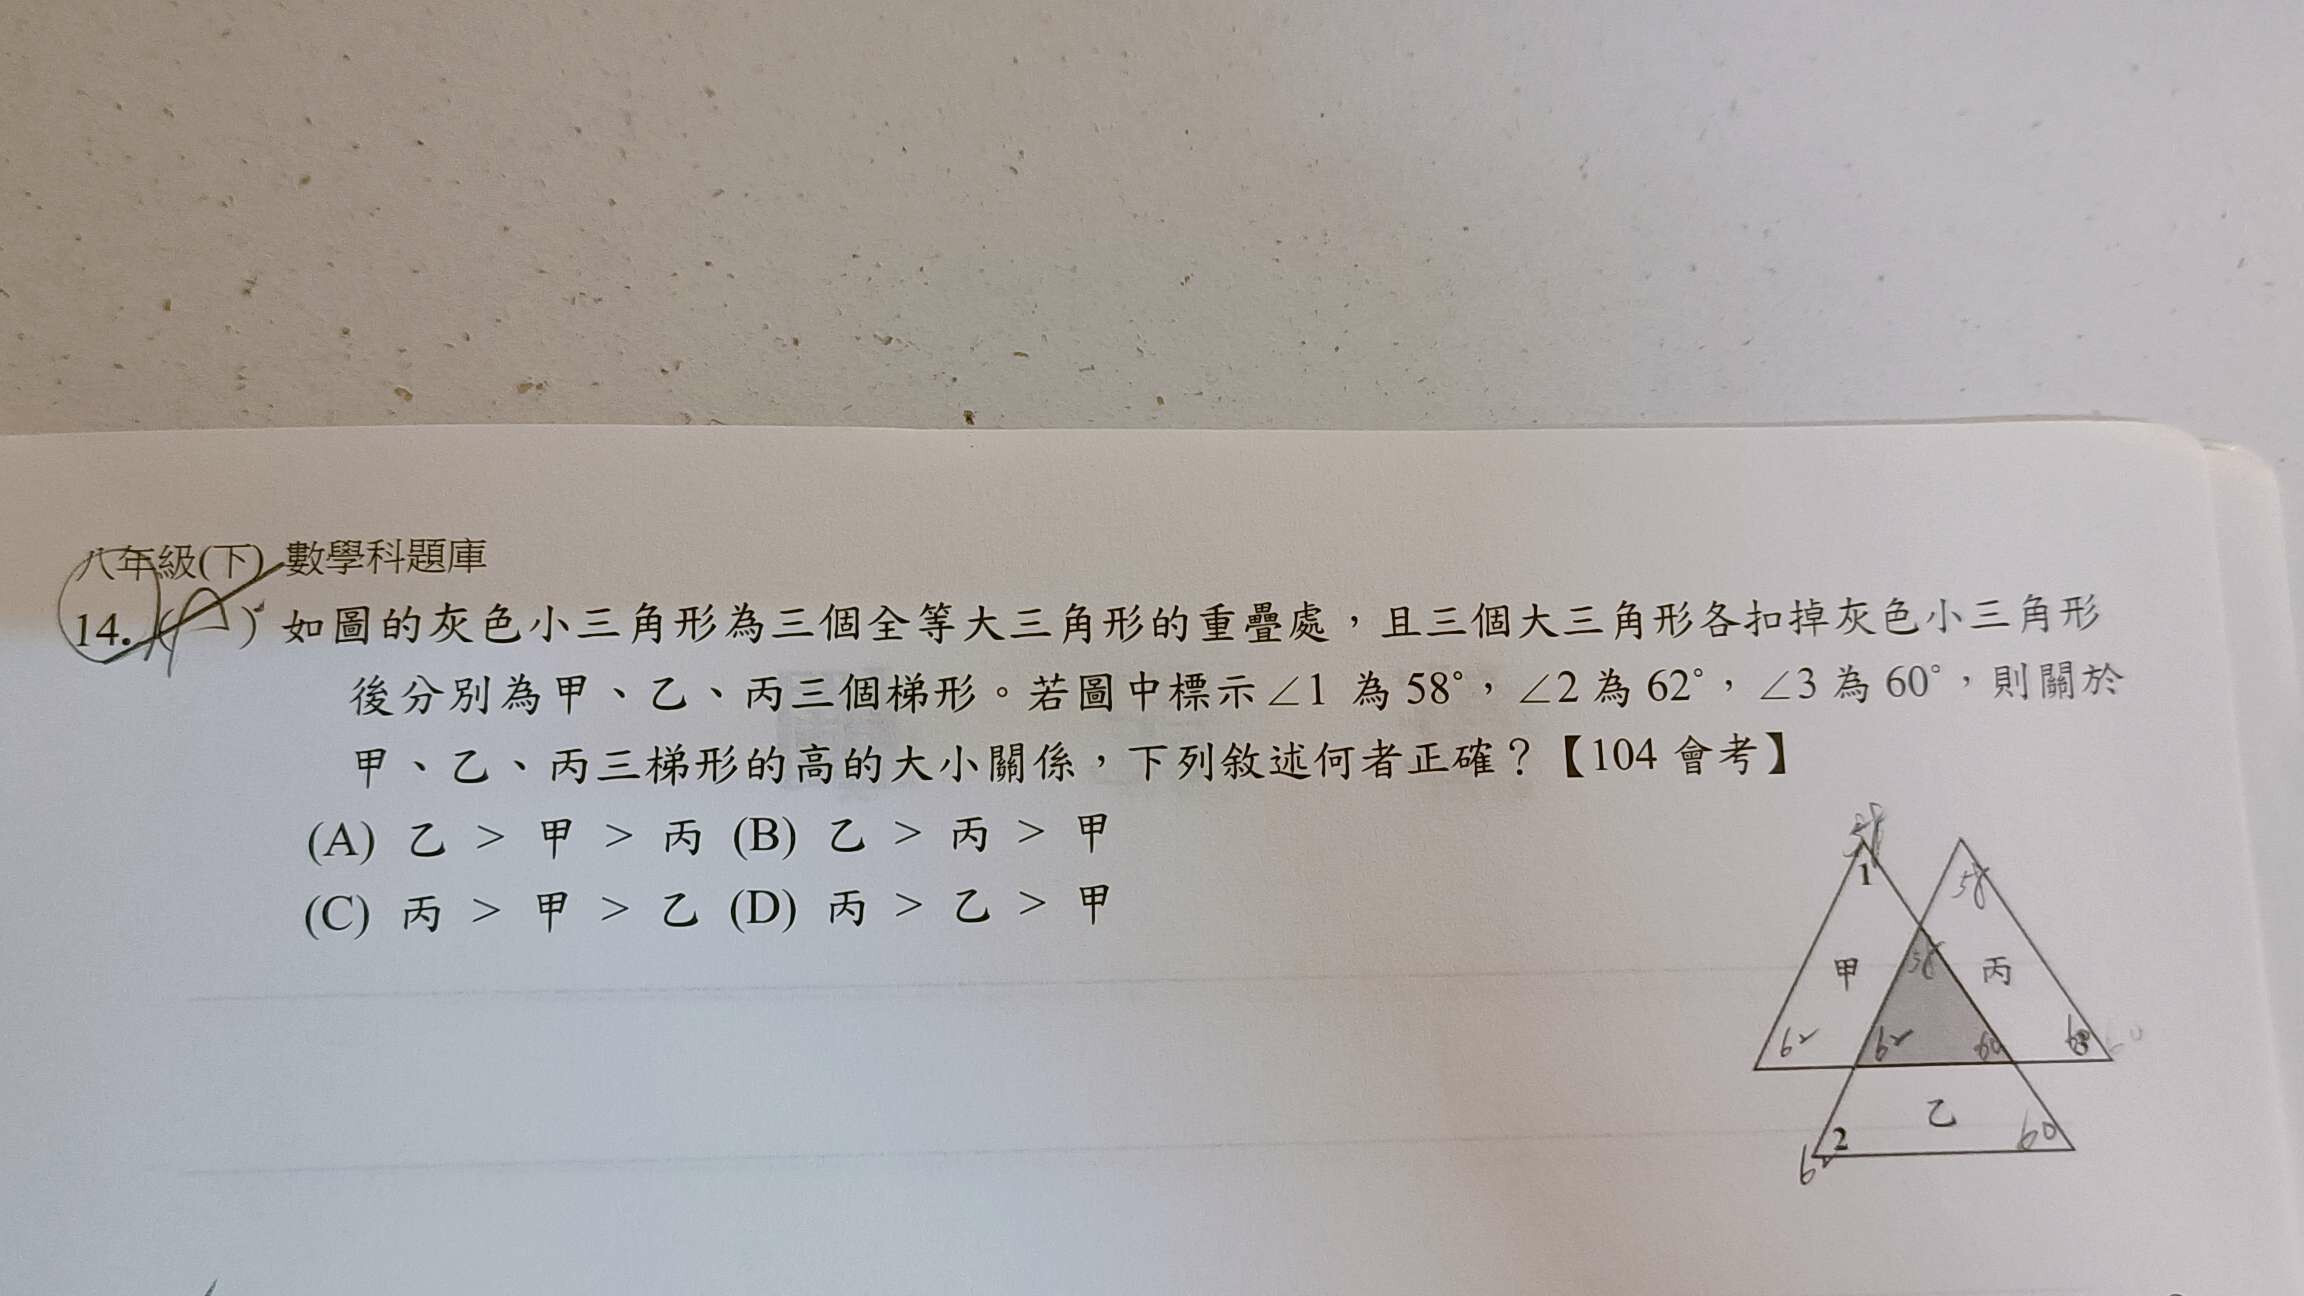 八年級(下) 數學科題庫
14. ( ) 如圖的灰色小三角形為三個全等大三角形的重疊處，且三個大三角形各扣掉灰色小三角形
後分別為甲、乙、丙三個梯形。若圖中標示∠1 為 58°，∠2 為 62°，∠3 為 60°，則關於
甲、乙、丙三梯形的高的大小關係，下列敘述何者正確？【104 會考】
(A) 乙 > 甲 > 丙 (B) 乙 > 丙 > 甲
(C) 丙 > 甲 > 乙 (D) 丙 > 乙 > 甲
58
1
58
58
甲
丙
62
62
60
60
3
60
乙
2
60
62